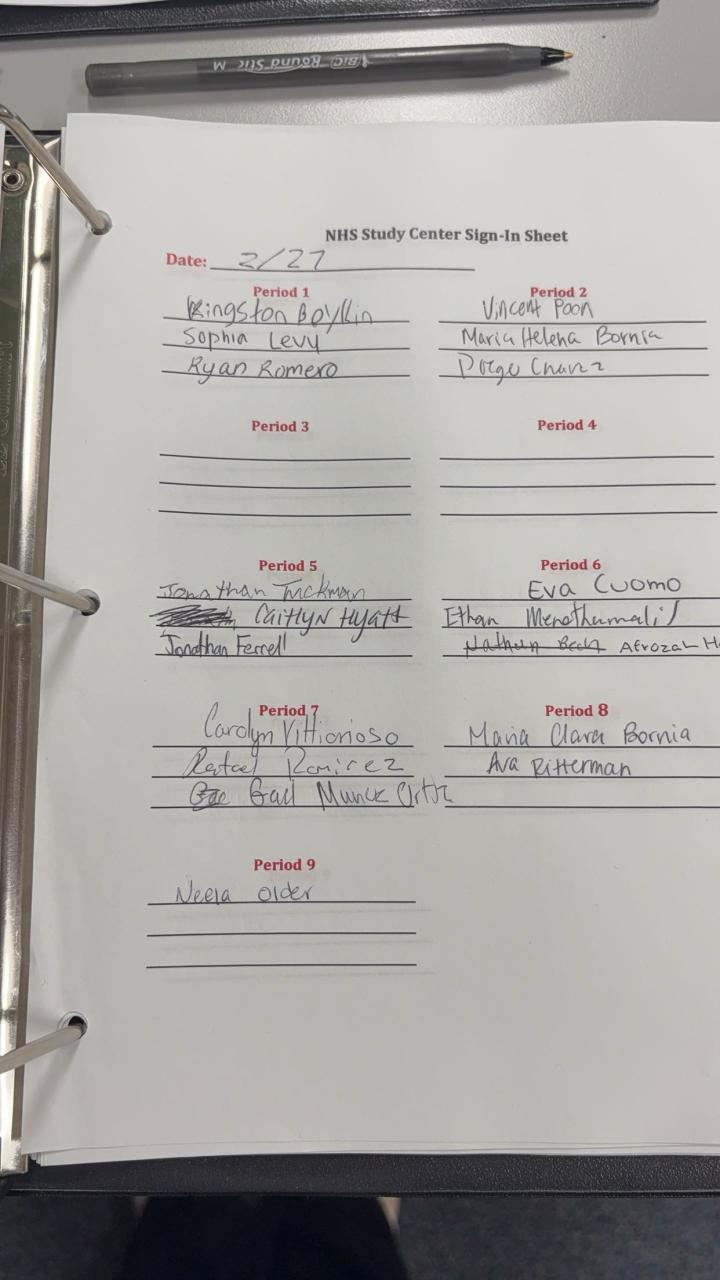 BIC Round Stic M
NHS Study Center Sign-In Sheet
Date: 2/27
Period 1
Kingston Boyllin
Sophia Levy
Ryan Romero
Period 2
Vincent Poon
Maria Helena Bornia
Period 3
Period 4
Period 5
Jonathan Tuckman
Caitlyn Hyatt
Jonathan Ferrell
Period 6
Eva Cuomo
Ethan
Nathan Bech Afrozah H
Period 7
Carolyn Vittorioso
Rafael Ramirez
Gail Ortiz
Period 8
Maria Clara Bornia
Ava Ritterman
Period 9
Neela Older